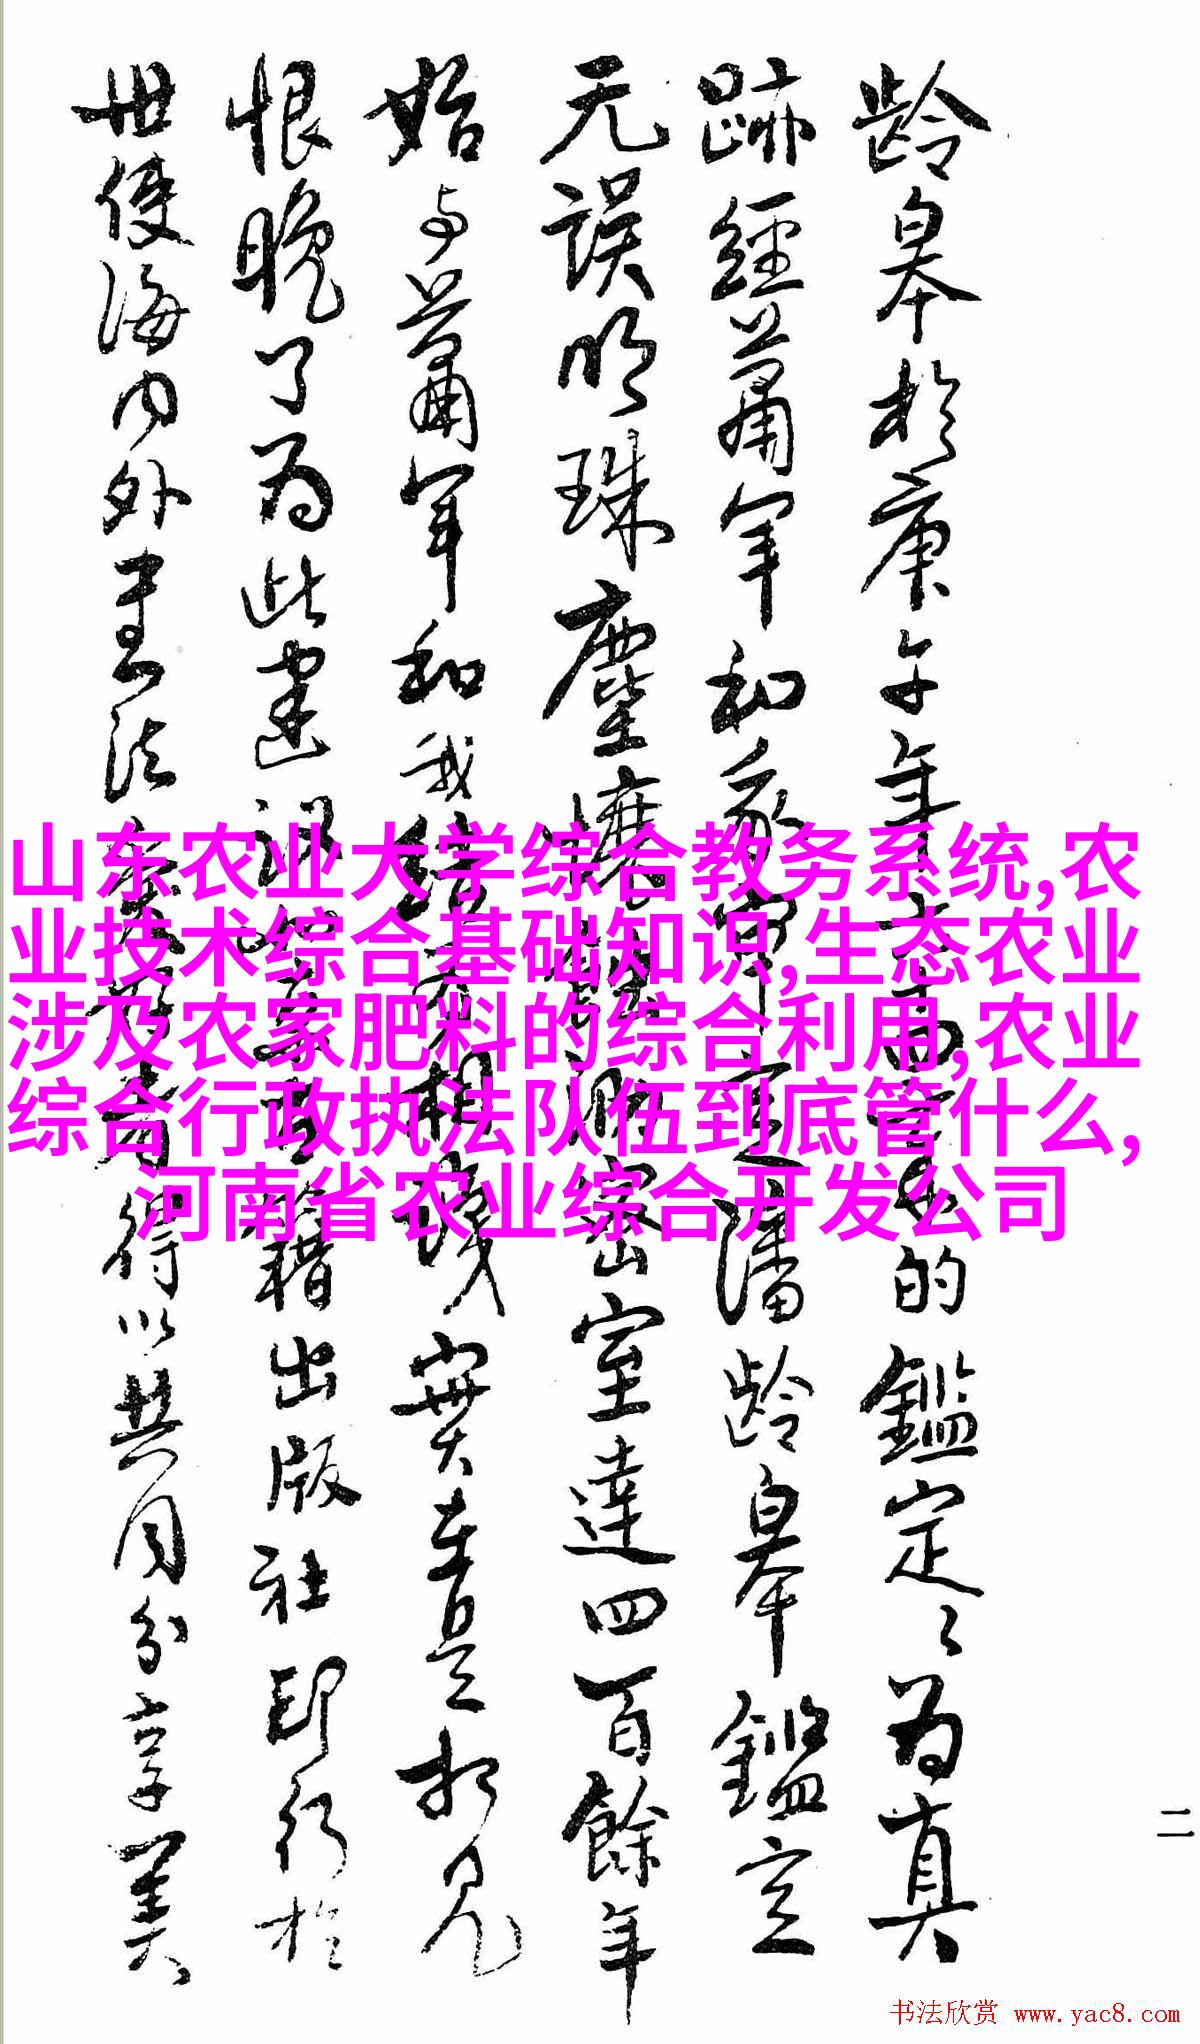 龄皋於庚午年
的鑑定之为真
跡經蕭军和
定潘龄皋鑑定
无误明珠塵
密室達四百餘年
始与蕭军和我
相
实在是相见
恨晚了为此建議
籍出版社印行於
世使海内外書法
得以共同分享美
二
山东农业大学综合教务系统,农
业技术综合基础知识,生态农业
涉及农家肥料的综合利用,农业
综合行政执法队伍到底管什么,
河南省农业综合开发公司
书法欣赏 www.yac8.com